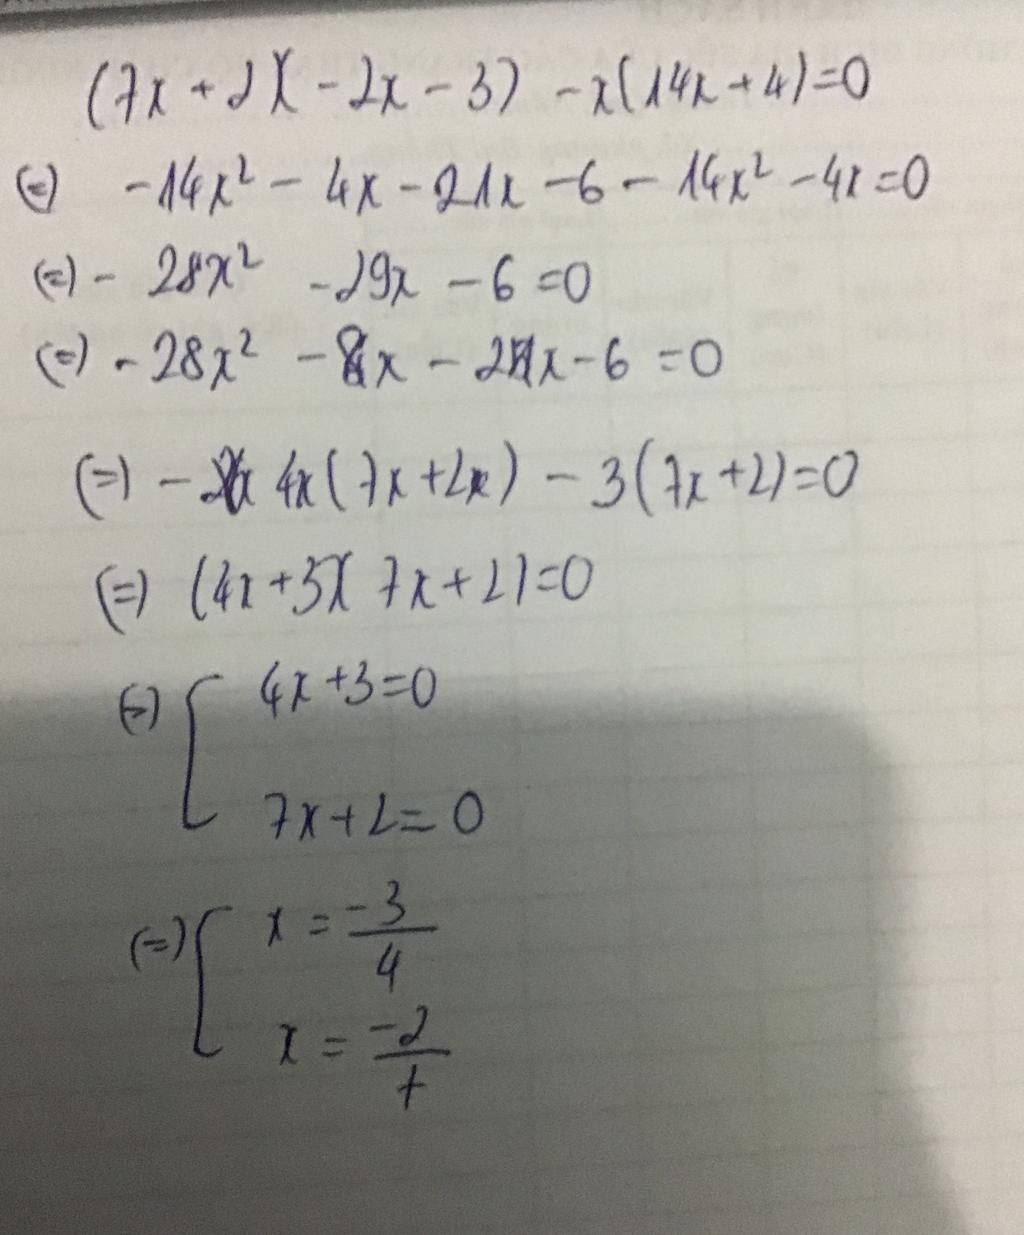 (7x+2)(-2x-3) -x(14x+4)=0
(=) -14x² - 4x - 21x - 6 - 14x² - 4x = 0
(=) - 28x² - 29x - 6 = 0
(=) - 28x² - 8x - 21x - 6 = 0
(=) - 4x (7x+2) - 3(7x+2)=0
(=) (4x+3)(7x+2)=0
(=) [ 4x+3=0
7x+2=0
(=) [ x = -3/4
x = -2/7